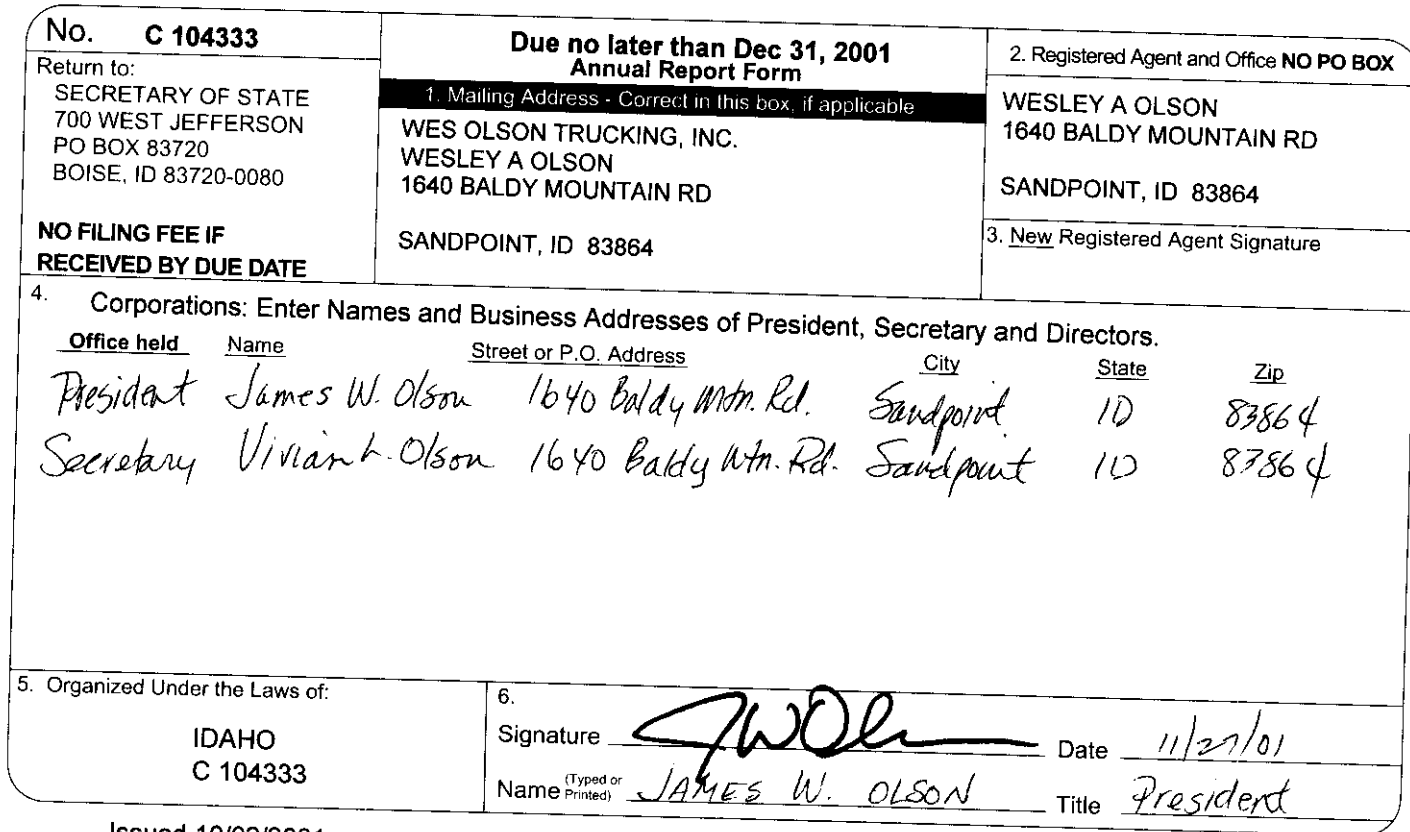 No. C 104333
Return to:
SECRETARY OF STATE
700 WEST JEFFERSON
PO BOX 83720
BOISE, ID 83720-0080
NO FILING FEE IF
RECEIVED BY DUE DATE
Due no later than Dec 31, 2001
Annual Report Form
1. Mailing Address - Correct in this box, if applicable
WES OLSON TRUCKING, INC.
WESLEY A OLSON
1640 BALDY MOUNTAIN RD
SANDPOINT, ID 83864
2. Registered Agent and Office NO PO BOX
WESLEY A OLSON
1640 BALDY MOUNTAIN RD
SANDPOINT, ID 83864
3. New Registered Agent Signature
4. Corporations: Enter Names and Business Addresses of President, Secretary and Directors.
Office held Name Street or P.O. Address City State Zip
President James W. Olson 1640 Baldy Mtn. Rd. Sandpoint ID 83864
Secretary Vivian L. Olson 1640 Baldy Mtn. Rd. Sandpoint ID 83864
5. Organized Under the Laws of:
IDAHO
C 104333
6.
Signature JWOl Date 11/27/01
Name (Typed or Printed) JAMES W. OLSON Title President